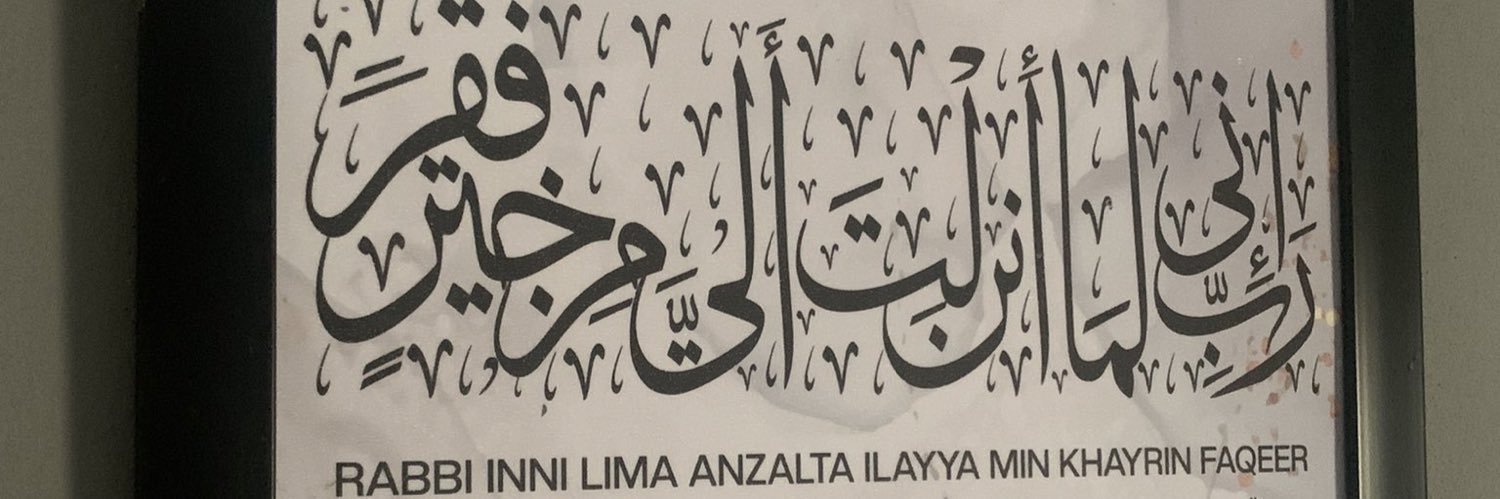 رَبِّ إِنِّي لِمَا أَنزَلْتَ إِلَيَّ مِنْ خَيْرٍ فَقِيرٌ
RABBI INNI LIMA ANZALTA ILAYYA MIN KHAYRIN FAQEER